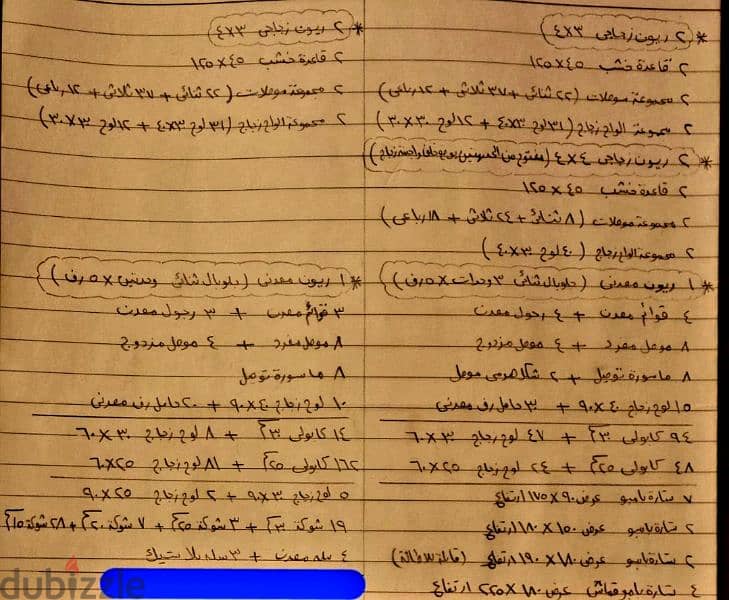 * ٢ ريون زجاجى ٣×٤
٢ قاعدة خشب ٤٥×١٢٥
٢ مجموعة موصلات (٢٢ ثنائى + ٣٧ ثلاثى + ١٢ رباعى)
٢ مجموعة الواح زجاج (٣١ لوح ٣×٤٠ + ١٢ لوح ٣٠×٣٠)
* ٢ ريون زجاجى ٤×٤ (مفتوح من الجهتين زجاج)
٢ قاعدة خشب ٤٥×١٢٥
٢ مجموعة موصلات (٨ ثنائى + ٢٤ ثلاثى + ١٨ رباعى)
٢ مجموعة الواح زجاج (٤٠ لوح ٣٠×٤٠)
* ١ ريون معدنى (ثنائى ٣ وحدات × ٥ رف)
٤ قوائم معدن + ٤ رجول معدن
٨ موصل مفرد + ٤ موصل مزدوج
٨ ماسورة توصيل + ٢ شكل هرمى موصل
١٥ لوح زجاج ٤٠×٩٠ + ٣٠ حامل رف معدنى
٩٤ كابولى ٣٠سم + ٤٧ لوح زجاج ٣٠×٦٠
٤٨ كابولى ٢٥سم + ٢٤ لوح زجاج ٢٥×٦٠
٧ ستارة بامبو عرض ٩٠×١٧٥ ارتفاع
٢ ستارة بامبو عرض ١٥٠×١٨٠ ارتفاع
٢ ستارة بامبو عرض ١٨٠×١٩٠ ارتفاع (قابلة للاطالة)
٤ ستارة بامبو قماش عرض ١٨٠×٢٢٥ ارتفاع
* ٢ ريون زجاجى ٣×٤
٢ قاعدة خشب ٤٥×١٢٥
٢ مجموعة موصلات (٢٢ ثنائى + ٣٧ ثلاثى + ١٢ رباعى)
٢ مجموعة الواح زجاج (٣١ لوح ٣×٤٠ + ١٢ لوح ٣٠×٣٠)
* ١ ريون معدنى (ثنائى وحدتين × ٥ رف)
٣ قوائم معدن + ٣ رجول معدن
٨ موصل مفرد + ٤ موصل مزدوج
٨ ماسورة توصيل
١٠ لوح زجاج ٤٠×٩٠ + ٢٠ حامل رف معدنى
١٤ كابولى ٣٠سم + ٨ لوح زجاج ٣٠×٦٠
١٦٢ كابولى ٢٥سم + ٨١ لوح زجاج ٢٥×٦٠
٥ لوح زجاج ٣٠×٩٠ + ٢ لوح زجاج ٢٥×٩٠
١٩ شوكة ٣٠سم + ٣ شوكة ٢٥سم + ٧ شوكة ٢٠سم + ٢٨ شوكة ١٥سم
٤ سله معدن + ٣ سله بلاستيك
dubizzle